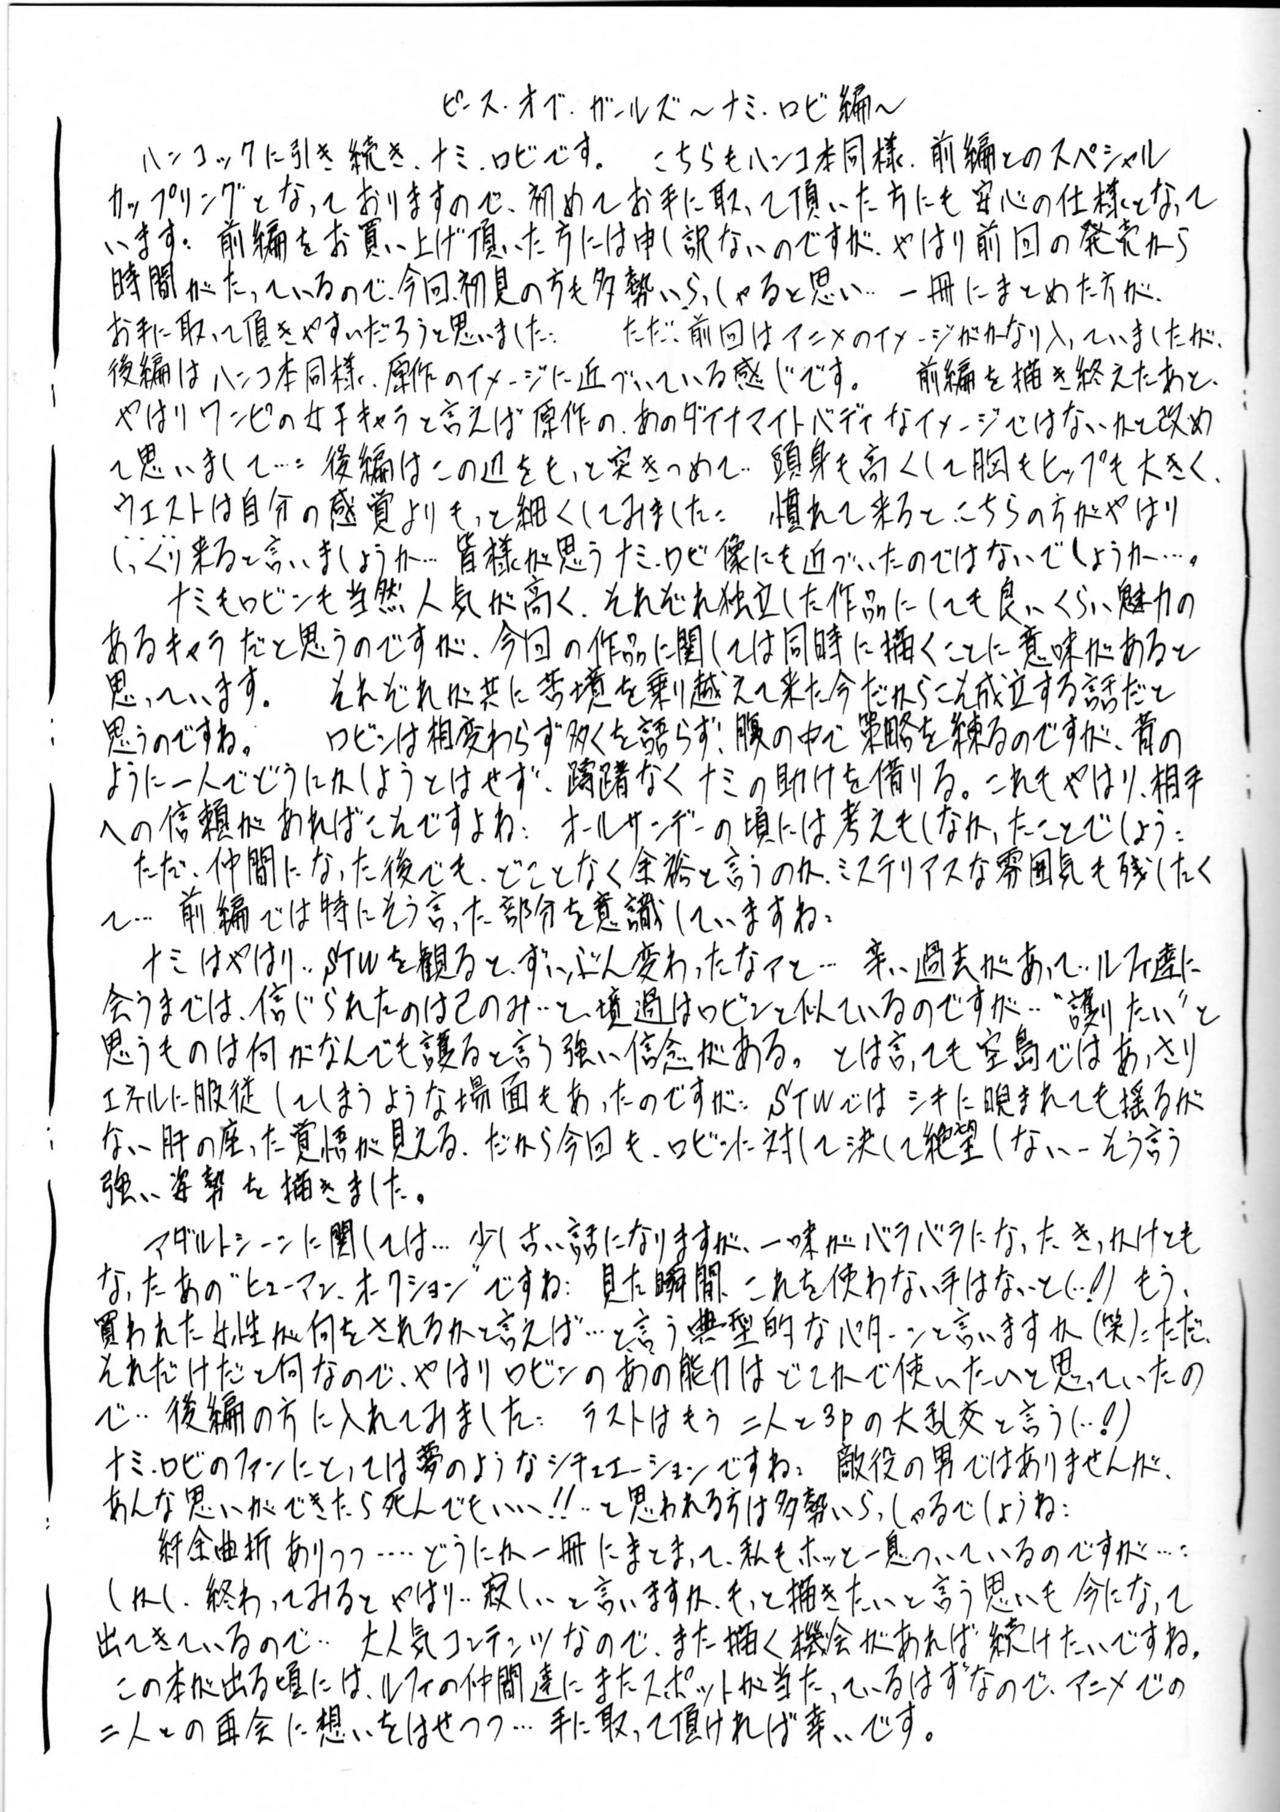 ピース・オブ・ガールズ～ナミ・ロビ編～
ハンコックに引き続き、ナミ・ロビです。 こちらもハンコ本同様、前編とのスペシャル
カップリングとなっておりますので、初めてお手に取って頂いた方にも安心の仕様となって
います: 前編をお買い上げ頂いた方には申し訳ないのですが、やはり前回の発売から
時間がたっているので、今回、初見の方も多勢いらっしゃると思い… 一冊にまとめた方が、
お手に取って頂きやすいだろうと思いました: ただ、前回はアニメのイメージがかなり入っていましたが、
後編はハンコ本同様、原作のイメージに近づいている感じです。 前編を描き終えたあと、
やはりワンピの女子キャラと言えば原作の、あのダイナマイトバディなイメージではないかと改め
て思いまして…: 後編はこの辺をもっと突きつめて‥ 頭身も高くして胸もヒップも大きく、
ウエストは自分の感覚よりもっと細くしてみました: 慣れて来ると、こちらの方がやはり
しっくり来ると言いましょうか… 皆様が思うナミ・ロビ像にも近づいたのではないでしょうか…。
ナミもロビンも当然人気が高く、それぞれ独立した作品にしても良いくらい魅力の
あるキャラだと思うのですが、今回の作品に関しては同時に描くことに意味があると
思っています。 それぞれが共に苦境を乗り越えて来た今だからこそ成立する話だと
思うのですね。 ロビンは相変わらず多くを語らず、腹の中で策略を練るのですが、昔の
ように一人でどうにかしようとはせず、躊躇なくナミの助けを借りる。これもやはり、相手
への信頼があればこそですよね: オールサンデーの頃には考えもしなかったことでしょう:
ただ、仲間になった後でも、どことなく余裕と言うのか、ミステリアスな雰囲気も残したく
て… 前編では特にそう言った部分を意識していますね:
ナミはやはり‥STWを観ると、ずいぶん変わったなァと… 辛い過去があって‥ルフィ達に
会うまでは、信じられたのは己のみ‥と、境過はロビンと似ているのですが‥“護りたい”と
思うものは何がなんでも護ると言う強い信念がある。とは言っても空島ではあっさり
エネルに服従してしまうような場面もあったのですが: STWではシキに睨まれても揺るが
ない肝の座った覚悟が見える。だから今回も、ロビンに対して決して絶望しない－そう言う
強い姿勢を描きました。
アダルトシーンに関しては… 少し古い話になりますが、一味がバラバラになったきっかけとも
なったあの“ヒューマン・オークション”ですね: 見た瞬間、これを使わない手はないと(‥!) もう、
買われた女性が何をされるかと言えば…と言う典型的なパターンと言いますか(笑): ただ、
それだけだと何なので、やはりロビンのあの能力はどこかで使いたいと思っていたの
で‥ 後編の方に入れてみました: ラストはもう二人と3Pの大乱交と言う(‥!)
ナミ・ロビのファンにとっては夢のようなシチュエーションですね: 敵役の男ではありませんが、
あんな思いができたら死んでもいい!!‥と思われる方は多勢いらっしゃるでしょうね:
紆余曲折ありつつ…‥どうにか一冊にまとまって、私もホッと一息ついているのですが…:
しかし、終わってみるとやはり‥寂しいと言いますか、もっと描きたいと言う思いも今になって
出てきているので‥ 大人気コンテンツなので、また描く機会があれば続けたいですね。
この本が出る頃には、ルフィの仲間達にまたスポットが当たっているはずなので、アニメでの
二人との再会に想いをはせつつ… 手に取って頂ければ幸いです。